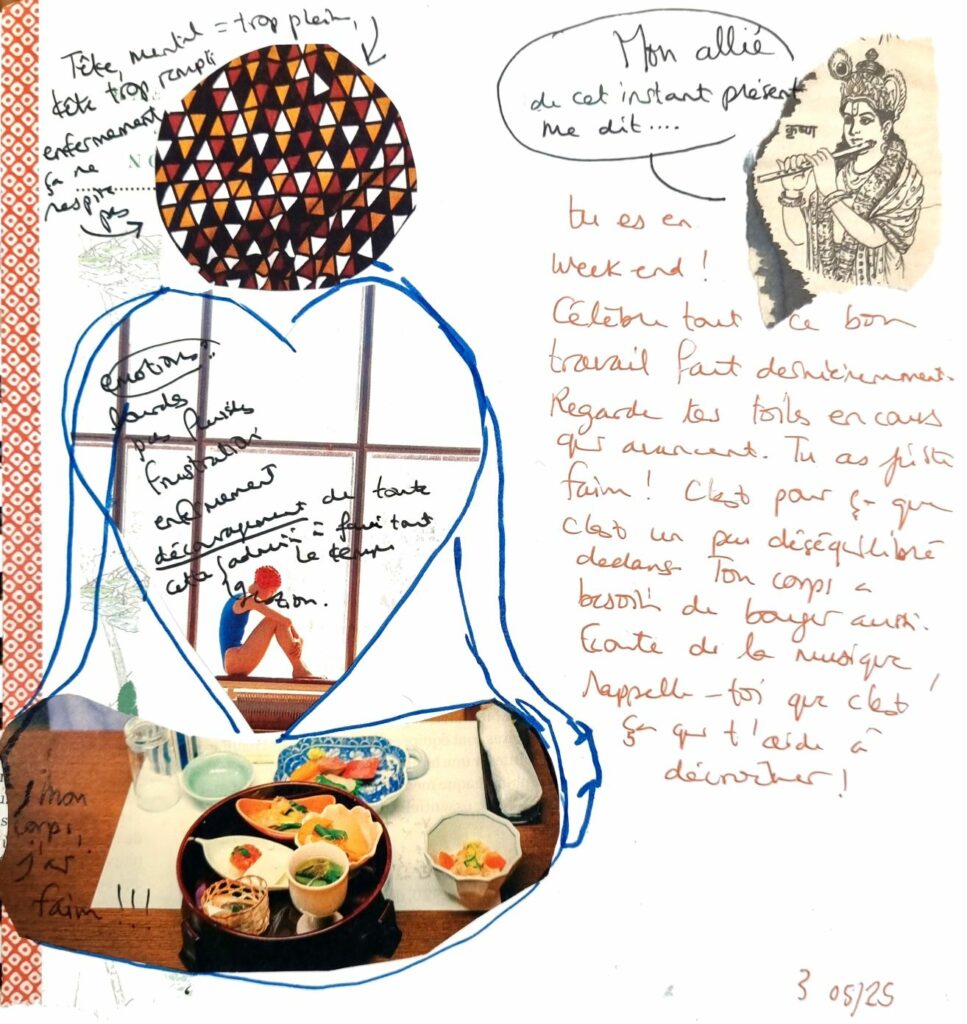 Tête, mental = trop plein,
tête trop rempli
enfermement
ça ne
respire
pas
N
émotions
lourdes
pas fluides
frustration
enfermement
découragement de toute
cette admin = faut tout
le temps
gestion.
mon
corps,
j'ai
faim !!!
Mon allié
de cet instant présent
me dit....
कृष्ण
tu es en
week-end !
Célèbre tout ce bon
travail fait dernièrement.
Regarde tes toiles en cours
qui avancent. Tu as juste
faim ! C'est pour ça que
c'est un peu déséquilibré
dedans. Ton corps a
besoin de bouger aussi.
Ecoute de la musique,
rappelle-toi que c'est
ça qui t'aide à
décrocher !
3 05/25